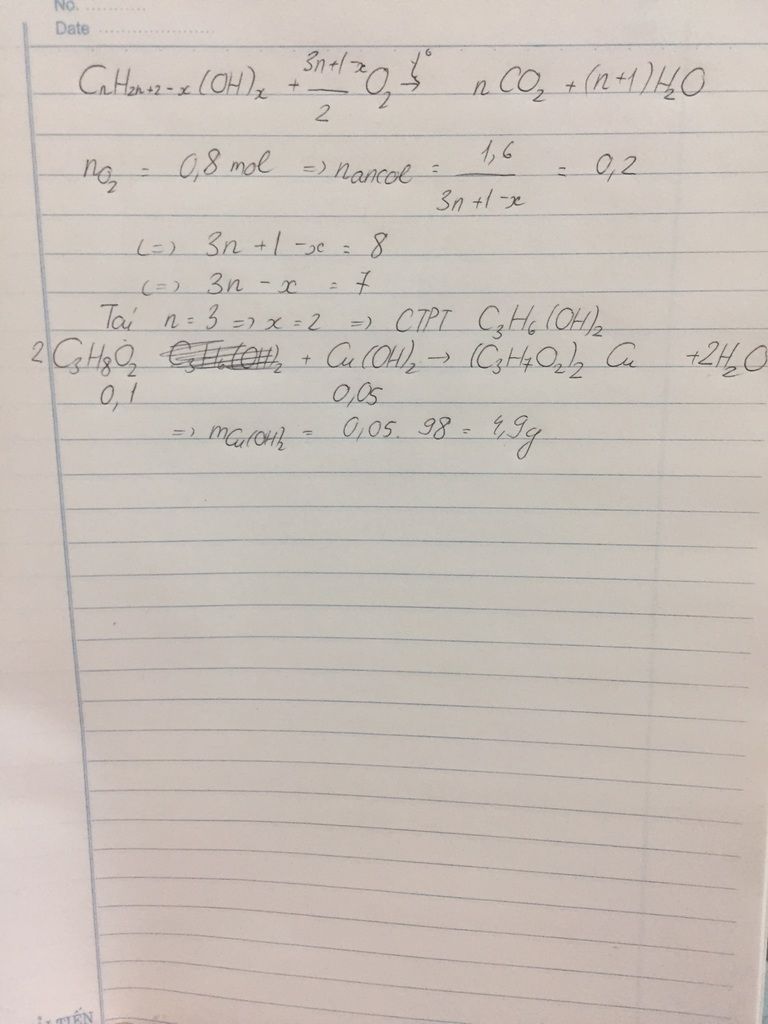 No. ............
Date .......................
CnH2n+2-x(OH)x + (3n+1-x)/2 O2 →t° nCO2 + (n+1)H2O
nO2 = 0,8 mol => nancol = 1,6/(3n+1-x) = 0,2
(=) 3n+1-x = 8
(=) 3n - x = 7
Tại n = 3 => x = 2 => CTPT C3H6(OH)2
2 C3H8O2 + Cu(OH)2 → (C3H7O2)2 Cu + 2H2O
0,1 0,05
=> mCu(OH)2 = 0,05. 98 = 4,9g
TIẾN